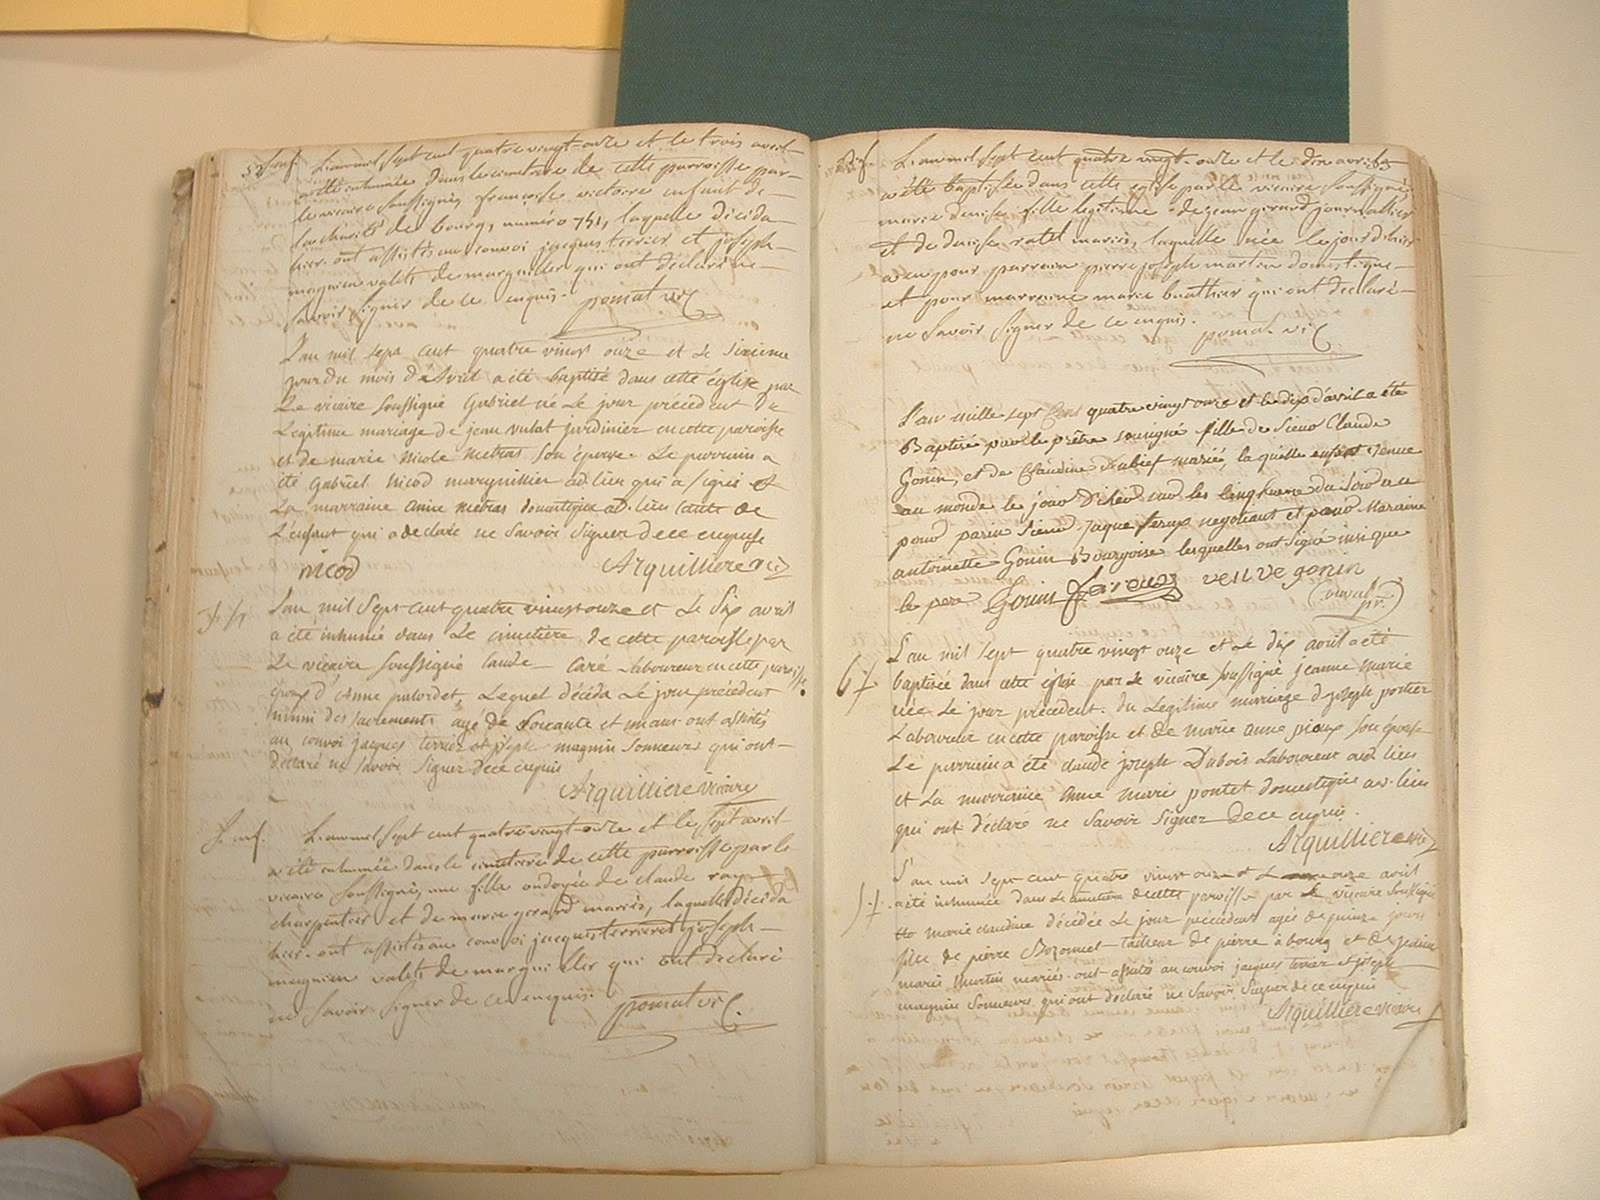 52
L'an mil sept cent quatre vingt-onze et le trois avril
a été inhumée dans le cimetière de cette parroisse par
le vicaire soussigné, françoise victoire enfant de
la charité de bourg, numéro 751, laquelle décéda
hier. ont assistés au convoi jacques terrier et joseph
magnien valets de marguiller qui ont déclaré ne
savoir signer de ce enquis. pomat vic
L'an mil sept cent quatre vingt onze et le sixieme
jour du mois d'avril a été baptisé dans cette église par
Le vicaire soussigné Gabriel né Le jour précédent du
Legitime mariage de jean vulat jardinier en cette paroisse
et de marie Nicole metras son épouse. Le parrain a
été Gabriel Nicod marguillier ad lieu qui a signé et
La marraine anne metras domestique ad. lieu tante de
L'enfant qui a declaré ne savoir signer de ce enquise
nicod Arquilliere vic
L'an mil sept cent quatre vingt onze et Le Six avril
a été inhumé dans Le cimetière de cette paroisse par
Le vicaire soussigné Claude Caré Laboureur en cette paroisse
epoux d'Anne Lequel décéda Le jour précédent
muni des sacrements agé de soixante et un ans. ont assistés
au convoi jacques terrier et joseph magnin sonneurs qui ont
déclaré ne savoir signer de ce enquis
Arquilliere vicaire
L'an mil sept cent quatre vingt-onze et le sept avril
a été inhumée dans le cimetière de cette parroisse par le
vicaire soussigné, une fille ondoyée de claude ray
charpentier et de marie gerard mariés, laquelle décéda
hier. ont assistés au convoi jacques terrier et joseph
magnien valets de marguillier qui ont déclaré
ne savoir signer de ce enquis. pomat vic.
L'an mil sept cent quatre vingt-onze et le dix avril 53
a été baptisée dans cette église par le vicaire soussigné,
marie denise fille légitime de jean girard journallier
et de denise ratel mariés, laquelle née le jour d'hier
a eu pour parrain pierre joseph martin domestique
et pour marraine marie buathier qui ont déclaré
ne savoir signer de ce enquis.
pomat vic
L'an mille sept cens quatre vingt onze et le dix d'avril a été
Baptisée par le prêtre sousigné fille de Sieur Claude
Gonin, et de Claudine Dubief mariés, la quelle enfant venue
au monde le jour d'hier sur les cinq heure du soir a eu
pour parin sieur Jaque feroux negotiant et pour Maraine
antoinette Gonin Bourgoise lesquelles ont signé insi que
le pere Gonin feroux veuve gonin
L'an mil sept quatre vingt onze et Le dix avril a été
baptisée dans cette église par Le vicaire soussigné jeanne Marie
née Le jour précédent. du Legitime mariage de joseph portier
Laboureur en cette paroisse et de marie anne pioux son épouse
Le parrain a été claude joseph Dubois Laboureur ad. lieu
et La marraine Anne Marie pontet domestique ad. lieu
qui ont déclaré ne savoir signer de ce enquis.
Arquilliere vic
L'an mil sept cent quatre vingt onze et Le onze avril
a été inhumée dans Le cimetière de cette paroisse par Le vicaire soussigné
marie claudine décédée Le jour précédent agée de quinze jours
fille de pierre Bozonnet tailleur de pierre à bourg et de jeanne
marie Martin mariés. ont assistés au convoi jacques terrier et joseph
magnin sonneurs qui ont déclaré ne savoir signer de ce enquis
Arquilliere vicaire